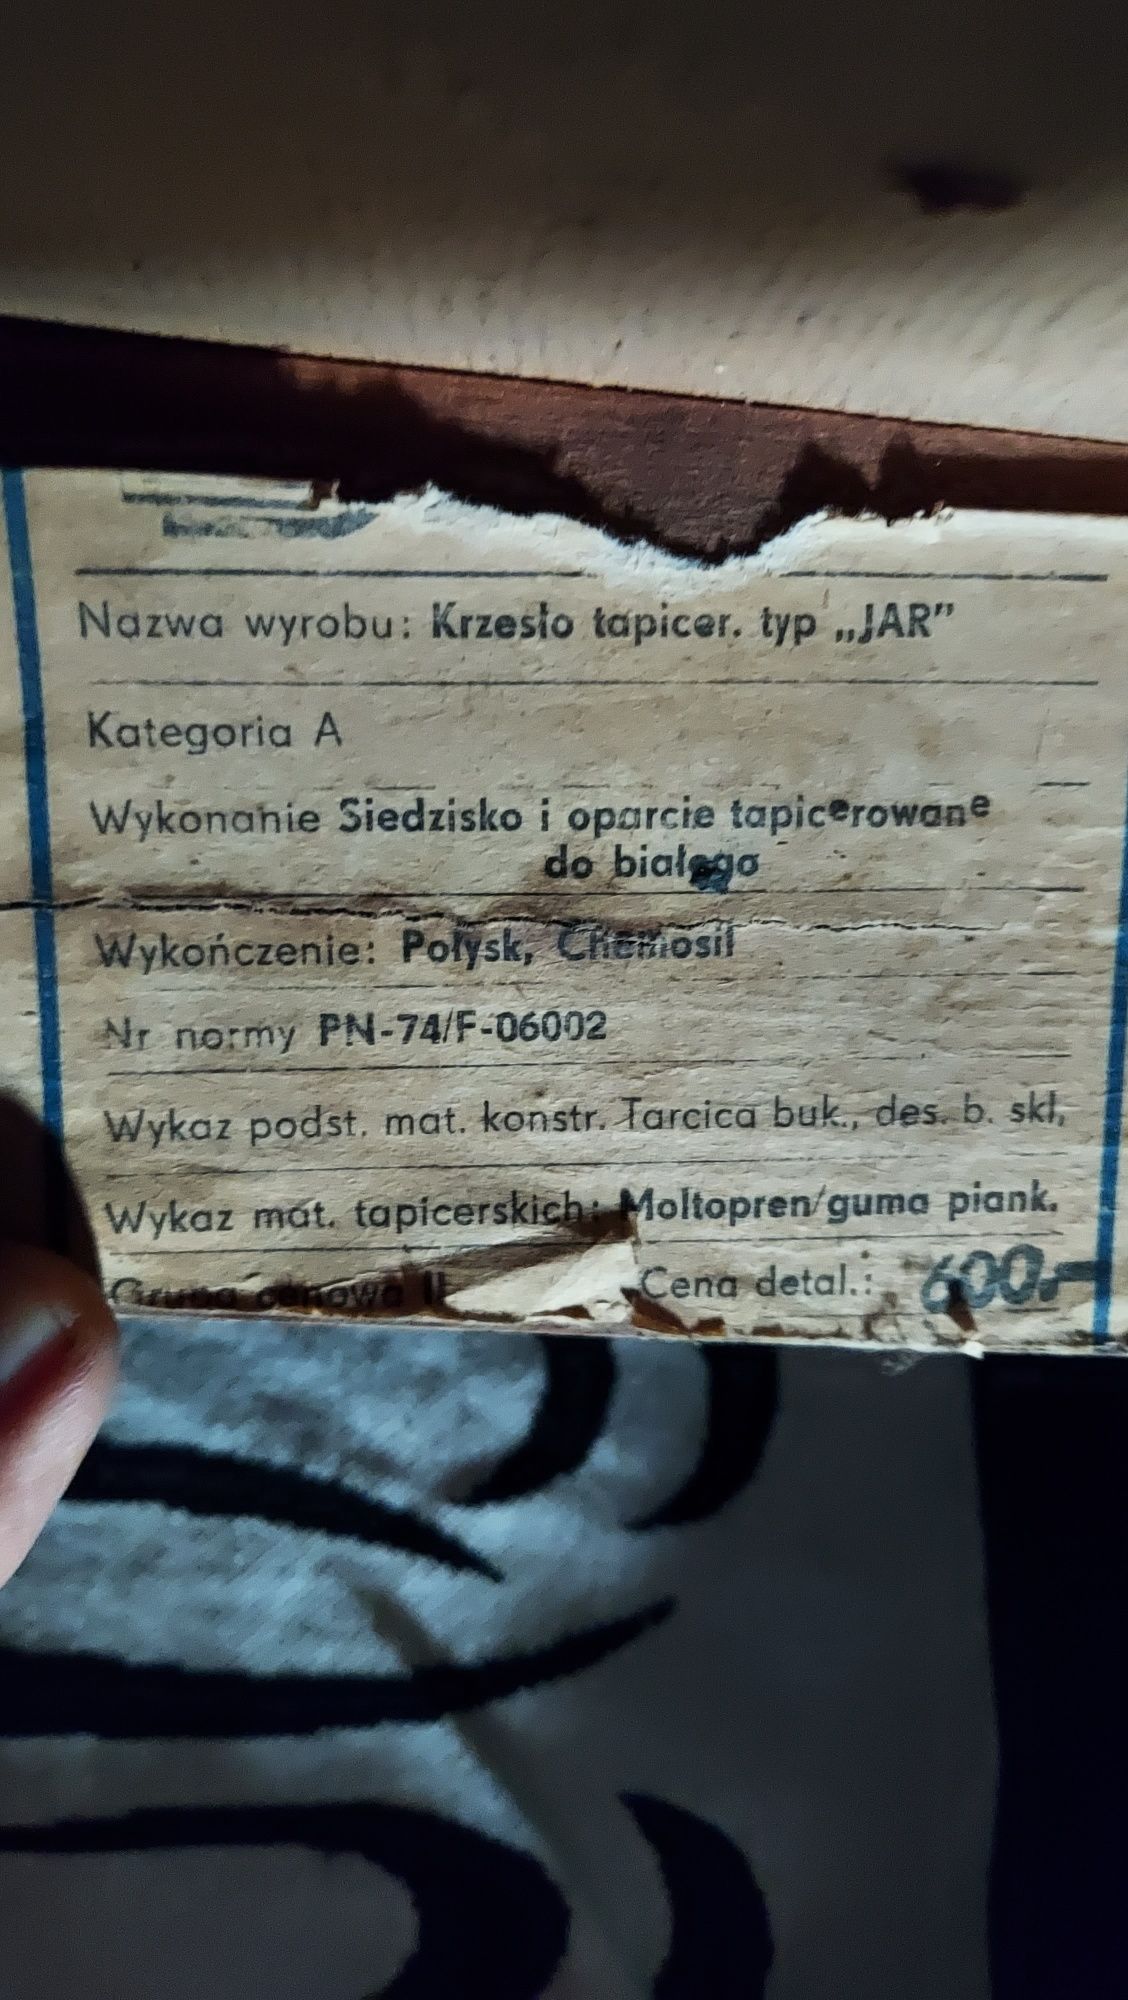 Nazwa wyrobu: Krzesło tapicer. typ „JAR”
Kategoria A
Wykonanie Siedzisko i oparcie tapicerowane
do białego
Wykończenie: Połysk, Chemosil
Nr normy PN-74/F-06002
Wykaz podst. mat. konstr. Tarcica buk., des. b. skl,
Wykaz mat. tapicerskich: Moltopren/guma piank.
Grupa cenowa II Cena detal.: 600.-